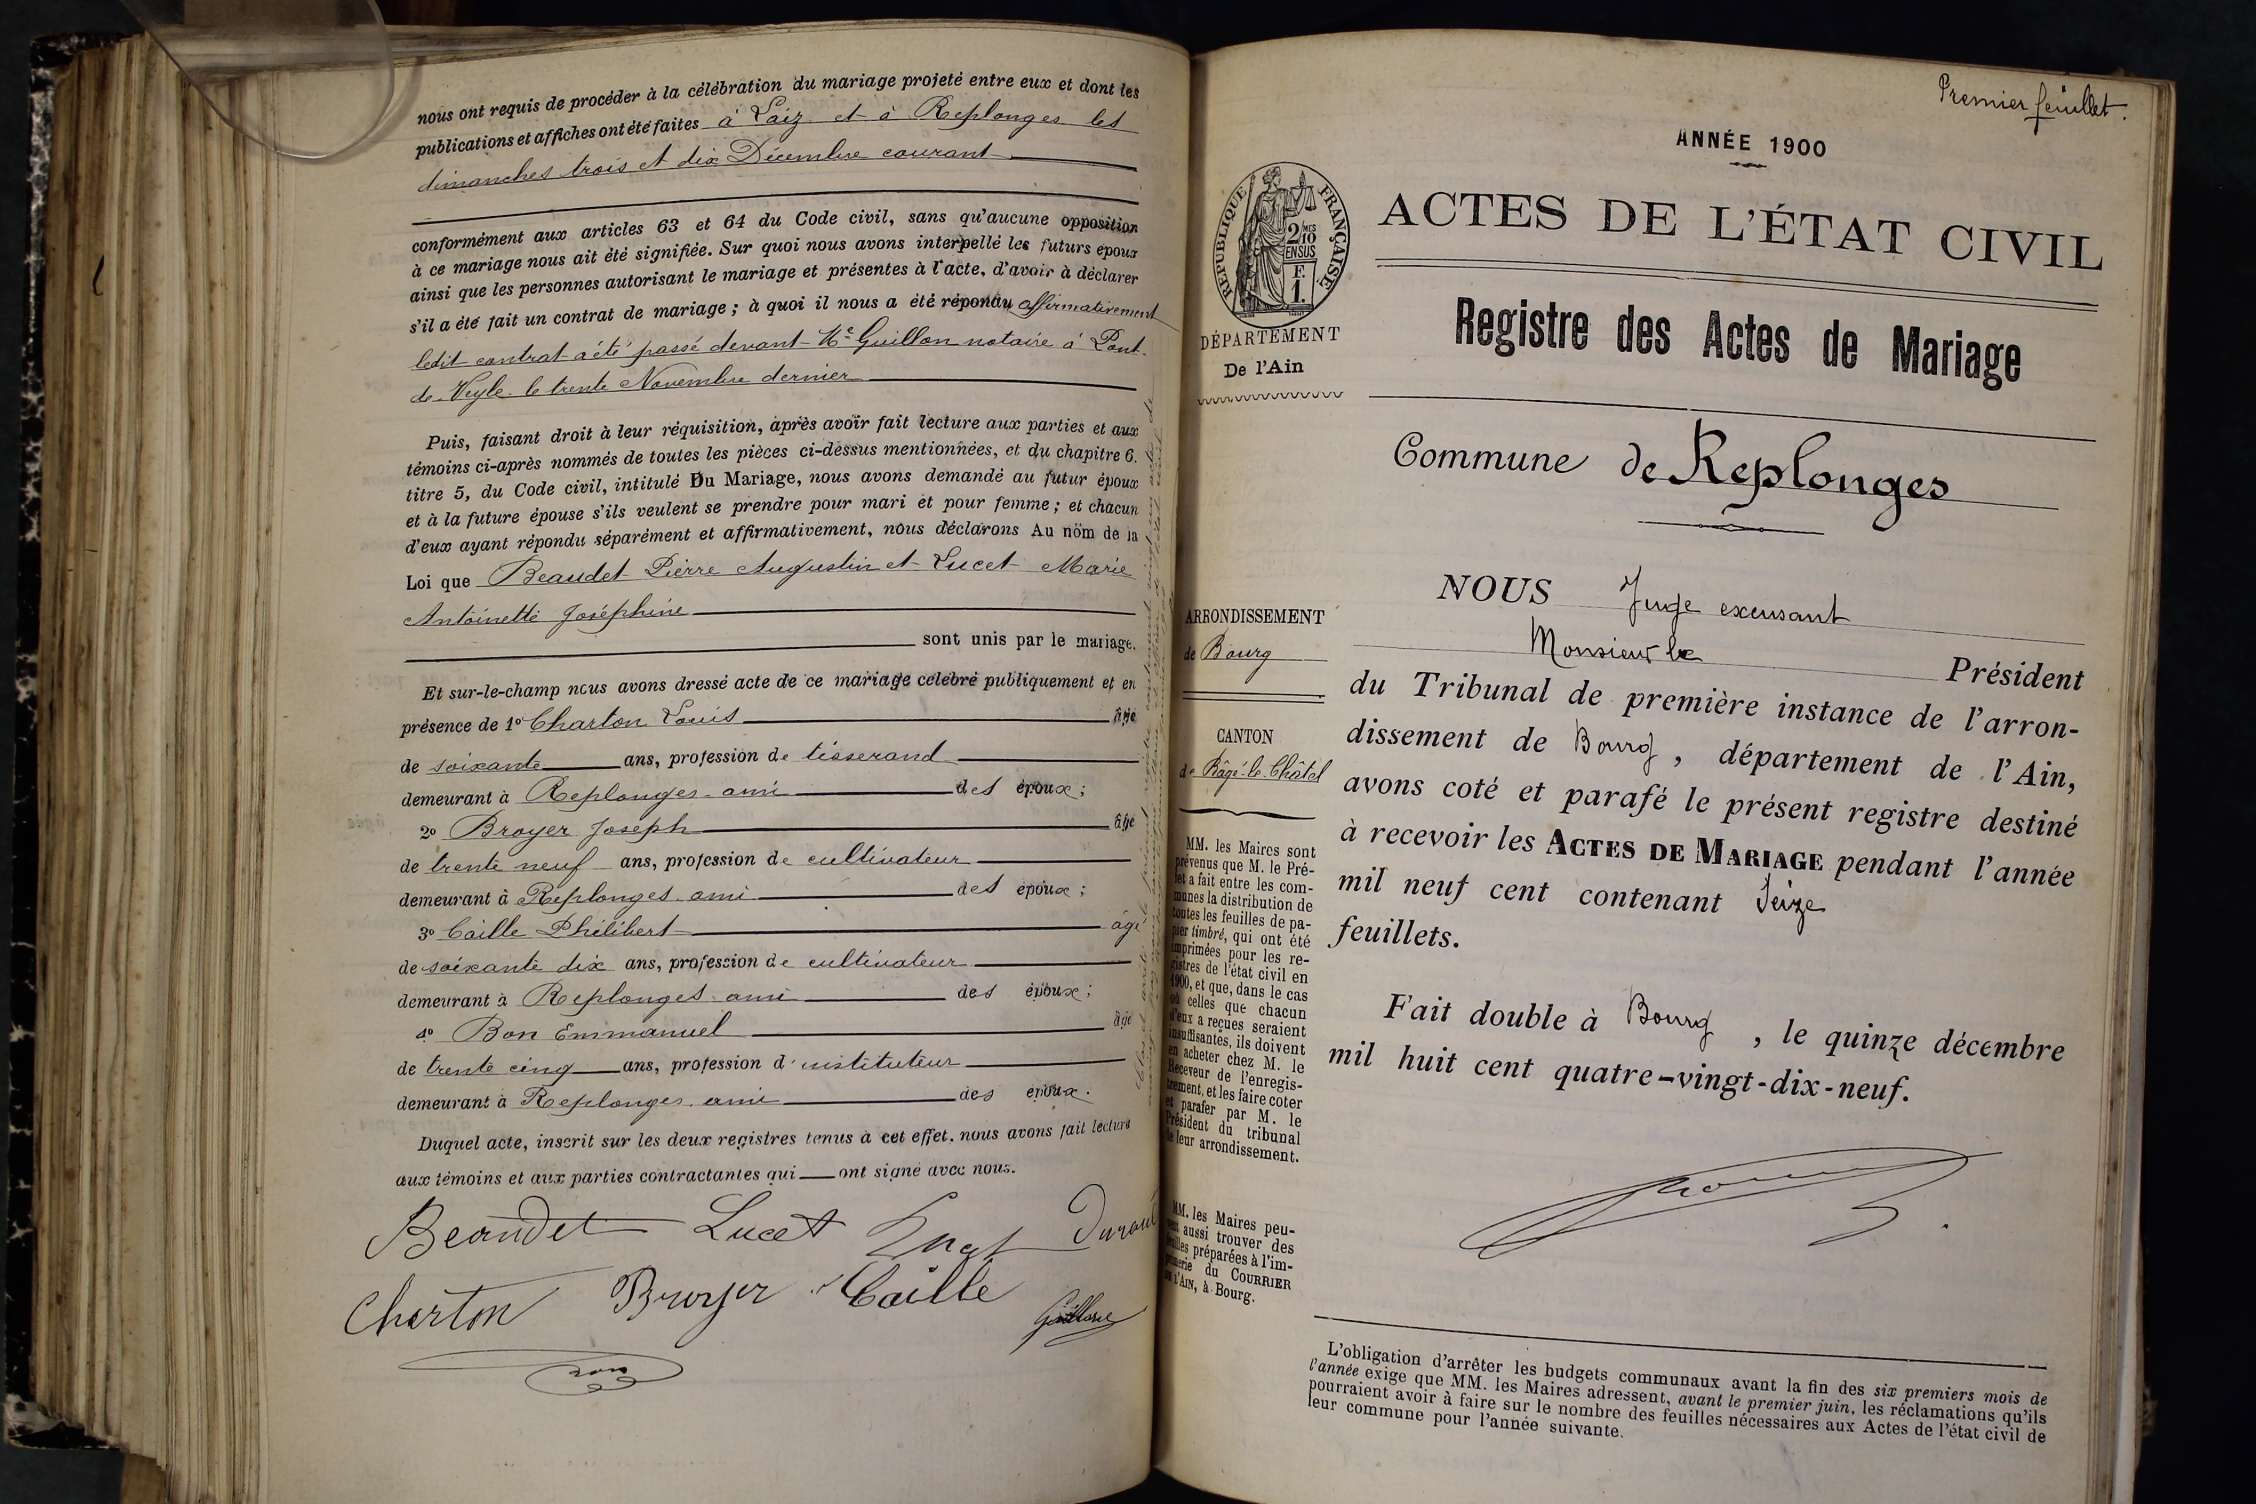 nous ont requis de procéder à la célébration du mariage projeté entre eux et dont les
publications et affiches ont été faites à Laiz et à Replonges les
dimanches trois et dix Décembre courant
conformément aux articles 63 et 64 du Code civil, sans qu'aucune opposition
à ce mariage nous ait été signifiée. Sur quoi nous avons interpellé les futurs époux
ainsi que les personnes autorisant le mariage et présentes à l'acte, d'avoir à déclarer
s'il a été fait un contrat de mariage ; à quoi il nous a été répondu affirmativement
ledit contrat a été passé devant Me Guillon notaire à Pont-
de-Veyle le trente Novembre dernier
Puis, faisant droit à leur réquisition, après avoir fait lecture aux parties et aux
témoins ci-après nommés de toutes les pièces ci-dessus mentionnées, et du chapitre 6.
titre 5, du Code civil, intitulé Du Mariage, nous avons demandé au futur époux
et à la future épouse s'ils veulent se prendre pour mari et pour femme ; et chacun
d'eux ayant répondu séparément et affirmativement, nous déclarons Au nom de la
Loi que Beaudet Pierre Augustin et Lucet Marie
Antoinette Joséphine
sont unis par le mariage.
Et sur-le-champ nous avons dressé acte de ce mariage célébré publiquement et en
présence de 1o Charton Louis âgé
de soixante ans, profession de tisserand
demeurant à Replonges ami des époux ;
2o Broyer Joseph âgé
de trente neuf ans, profession de cultivateur
demeurant à Replonges ami des époux ;
3o Caille Philibert âgé
de soixante dix ans, profession de cultivateur
demeurant à Replonges ami des époux ;
4o Bon Emmanuel âgé
de trente cinq ans, profession d'instituteur
demeurant à Replonges ami des époux.
Duquel acte, inscrit sur les deux registres tenus à cet effet, nous avons fait lecture
aux témoins et aux parties contractantes qui ont signé avec nous.
Beaudet Lucet Lucet Durand
Charton Broyer Caille
Bon
Premier feuillet.
ANNÉE 1900
ACTES DE L'ÉTAT CIVIL
RÉPUBLIQUE FRANÇAISE
2/10MES
EN SUS
F.
1.
DÉPARTEMENT
De l'Ain
Registre des Actes de Mariage
Commune de Replonges
ARRONDISSEMENT
de Bourg
CANTON
de Bâgé-le-Châtel
MM. les Maires sont
prévenus que M. le Pré-
fet a fait entre les com-
munes la distribution de
toutes les feuilles de pa-
pier timbré, qui ont été
imprimées pour les re-
gistres de l'état civil en
1900, et que, dans le cas
où celles que chacun
d'eux a reçues seraient
insuffisantes, ils doivent
en acheter chez M. le
Receveur de l'enregis-
trement, et les faire coter
et parafer par M. le
Président du tribunal
de leur arrondissement.
MM. les Maires peu-
vent aussi trouver des
feuilles préparées à l'im-
primerie du COURRIER
DE L'AIN, à Bourg.
NOUS Juge excusant
Monsieur le Président
du Tribunal de première instance de l'arron-
dissement de Bourg, département de l'Ain,
avons coté et parafé le présent registre destiné
à recevoir les ACTES DE MARIAGE pendant l'année
mil neuf cent contenant Seize
feuillets.
Fait double à Bourg, le quinze décembre
mil huit cent quatre-vingt-dix-neuf.
L'obligation d'arrêter les budgets communaux avant la fin des six premiers mois de
l'année exige que MM. les Maires adressent, avant le premier juin, les réclamations qu'ils
pourraient avoir à faire sur le nombre des feuilles nécessaires aux Actes de l'état civil de
leur commune pour l'année suivante.